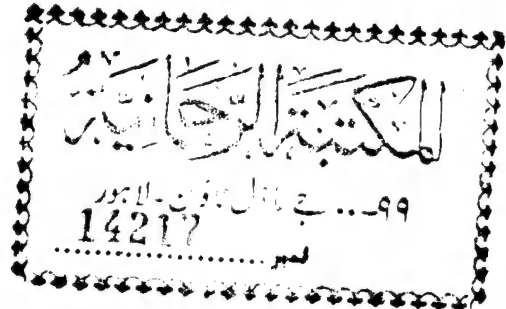 المكتبة الرحمانية
۹۹... جے ماڈل ٹاؤن ۔ لاہور
14217
نمبر ....................